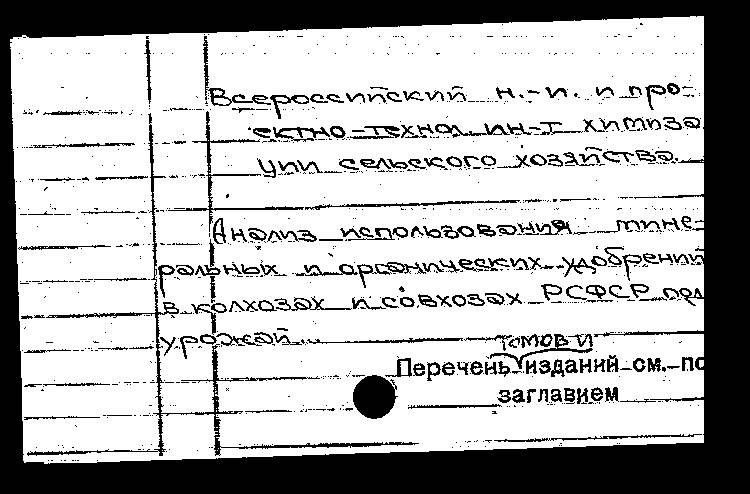 Всероссийский н.-и. и про-
ектно-технол. ин-т химиза
ции сельского хозяйства
Анализ использования мине-
ральных и органических удобрений
в колхозах и совхозах РСФСР под
урожай...
томов и
Перечень изданий см. по
заглавием